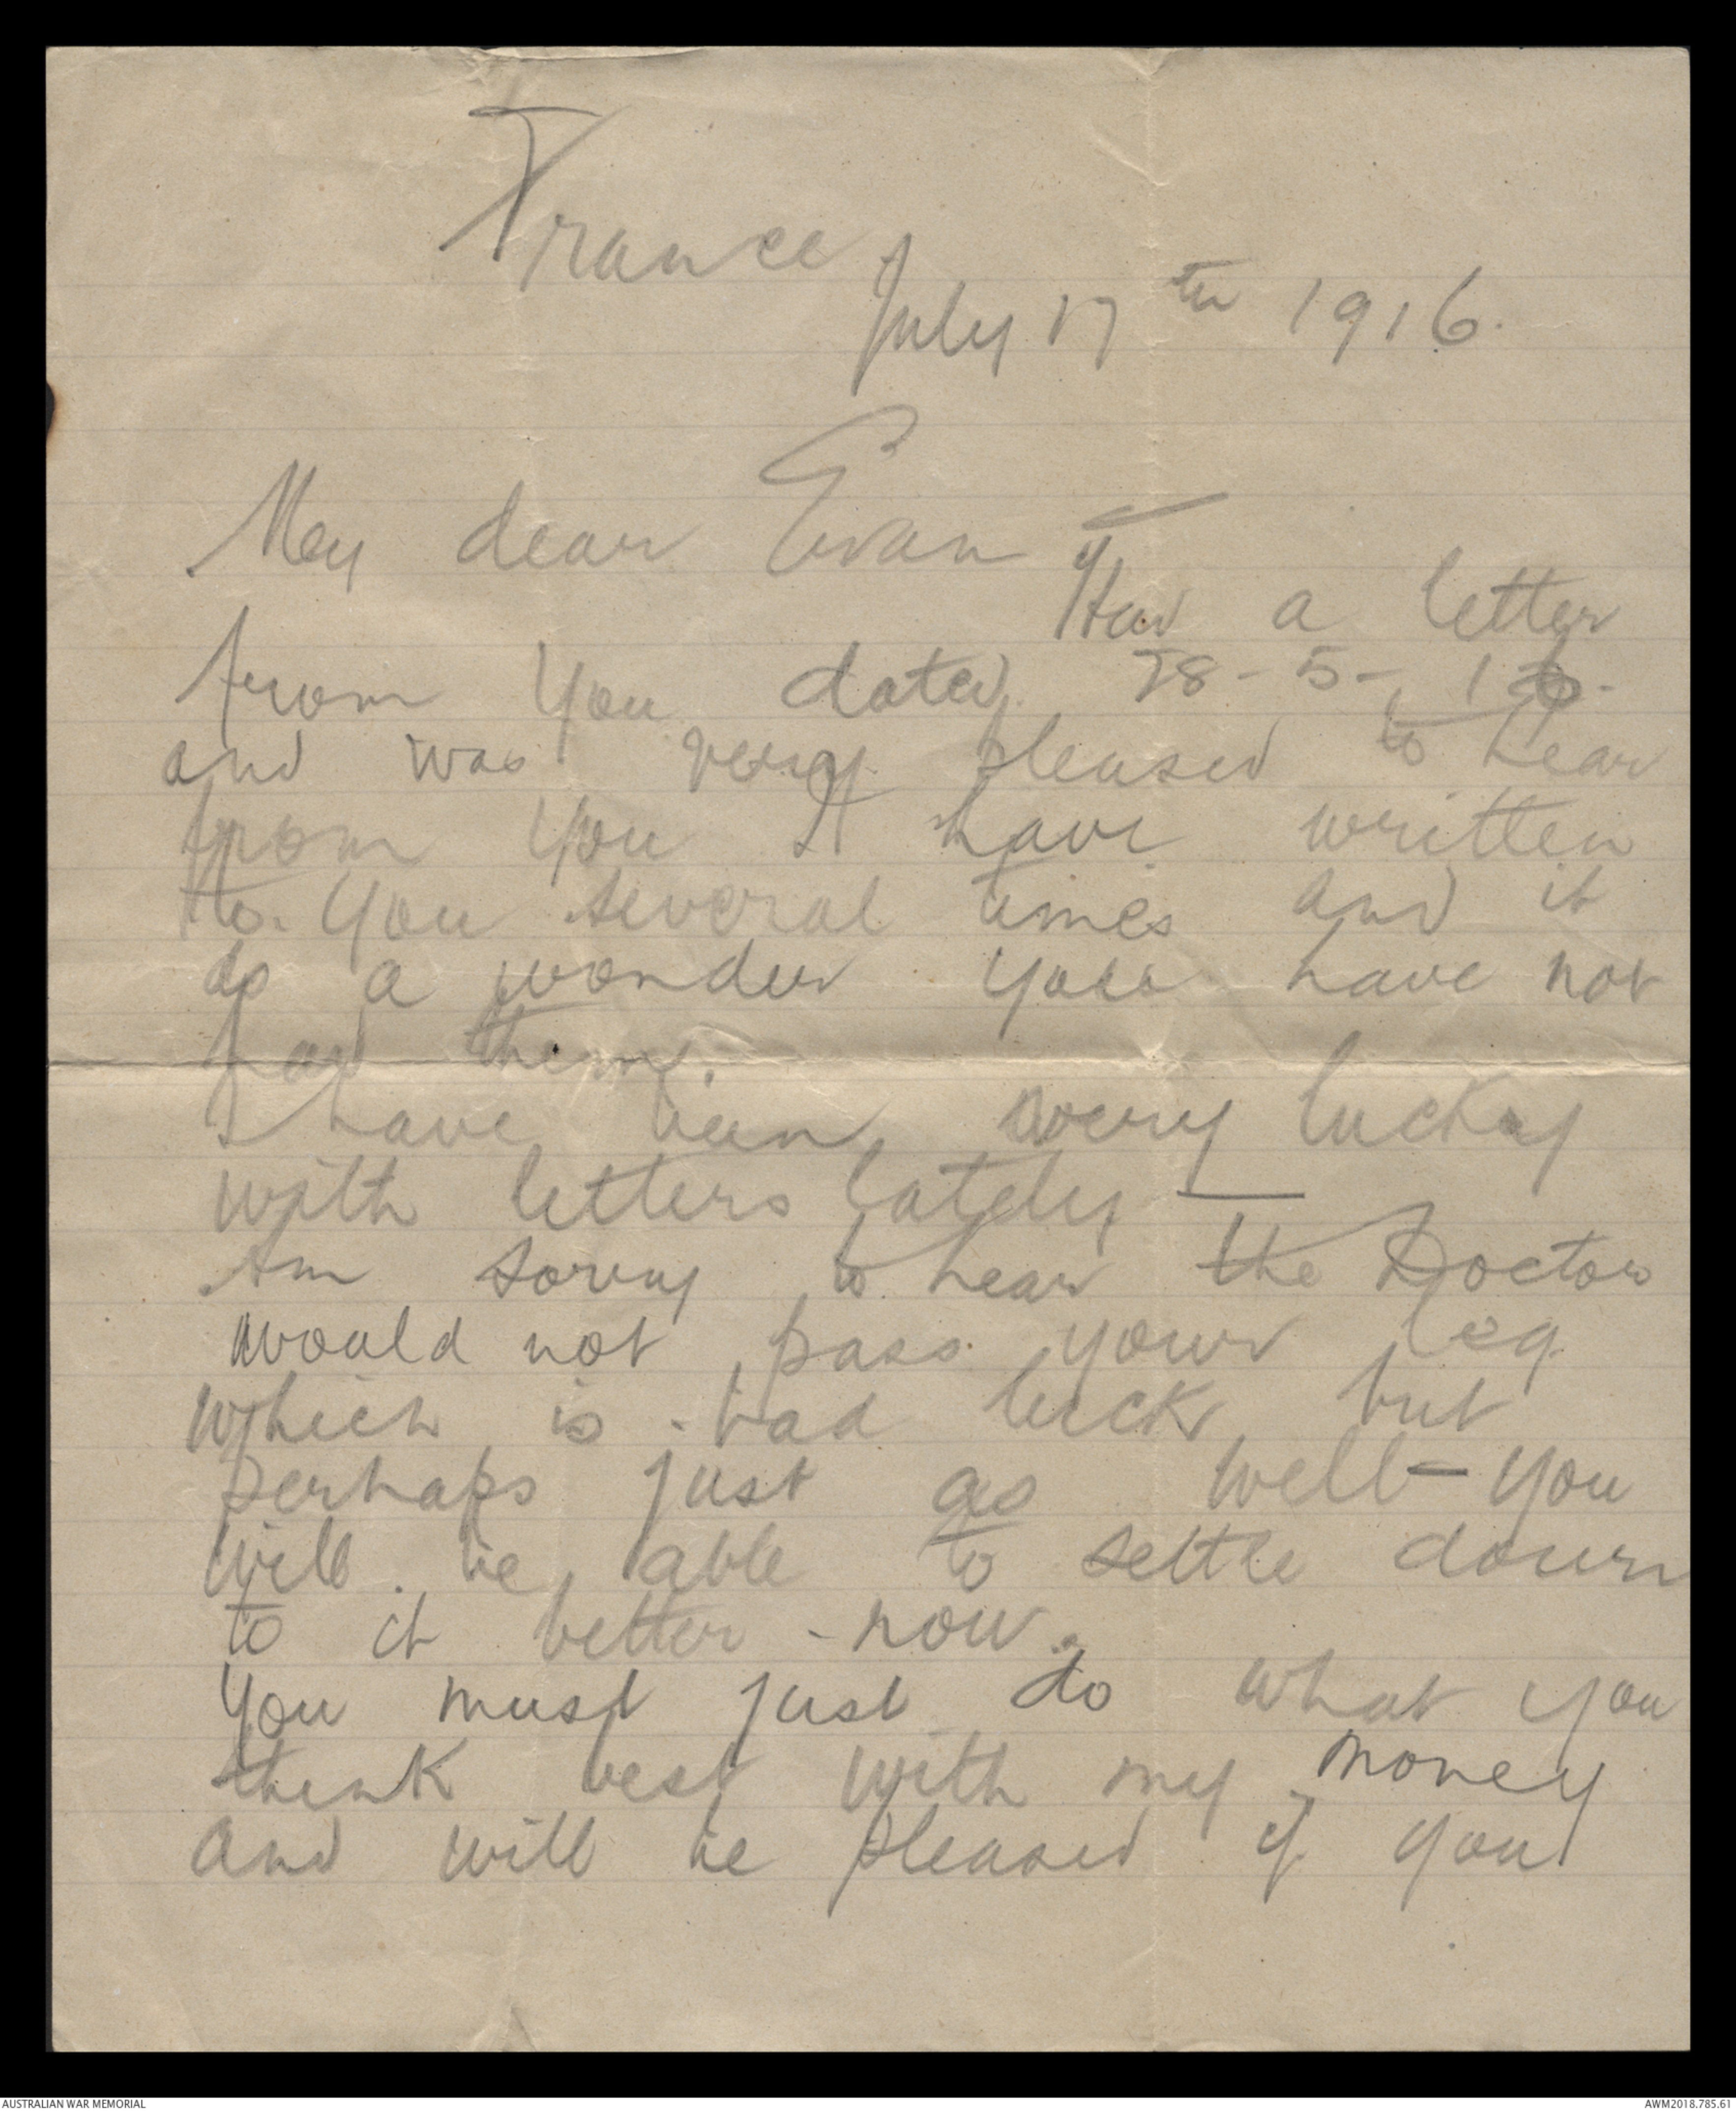 France
July 17th 1916.
My dear Evan
Had a letter
from you dated 28-5-16.
and was very pleased to hear
from you I have written
to you several times and it
is a wonder you have not
had them.
I have been very lucky
with letters lately —
Am sorry to hear the Doctor
would not pass your leg
which is bad luck but
perhaps just as well - you
will be able to settle down
to it better now.
You must just do what you
think best with my money
and will be pleased if you
AUSTRALIAN WAR MEMORIAL
AWM2018.785.61